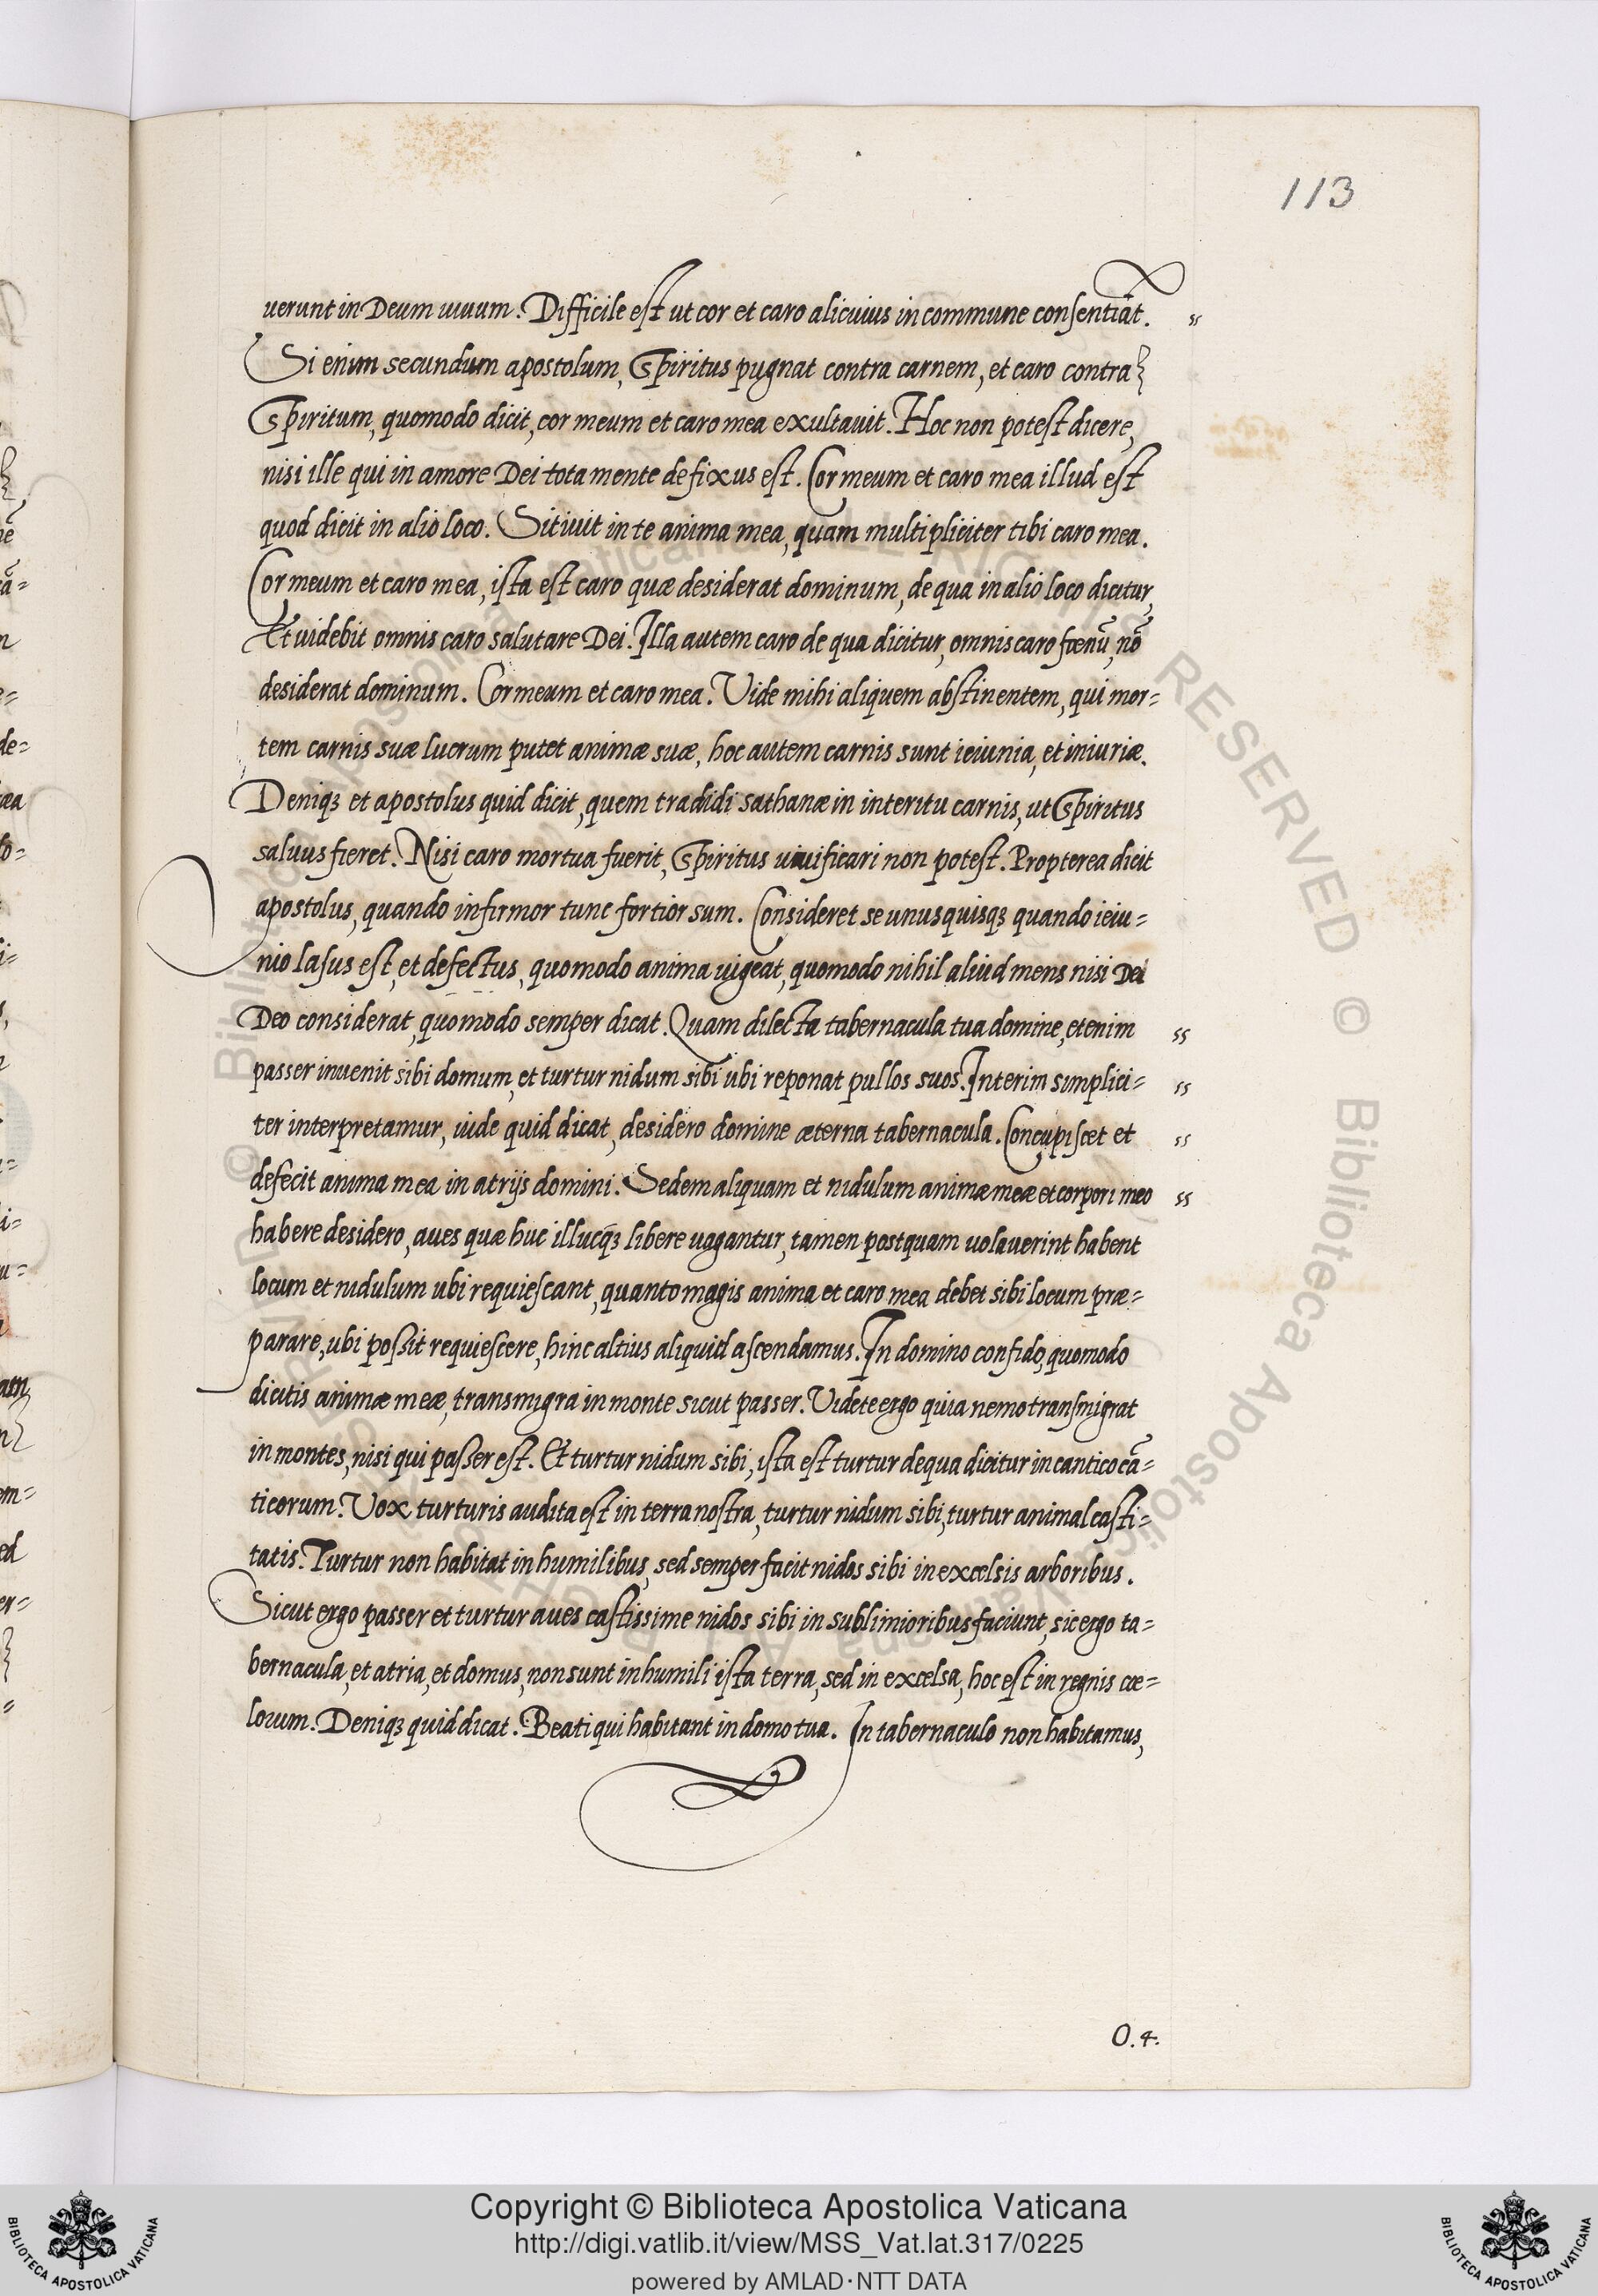 113
uerunt in Deum uiuum. Difficile est ut cor et caro alicuius in commune consentiāt.
Si enim secundum apostolum, Spiritus pugnat contra carnem, et caro contra
Spiritum, quomodo dicit, cor meum et caro mea exultauit. Hoc non potest dicere,
nisi ille qui in amore Dei tota mente defixus est. Cor meum et caro mea illud est
quod dicit in alio loco. Sitiuit in te anima mea, quam multipliciter tibi caro mea.
Cor meum et caro mea, ista est caro quæ desiderat dominum, de qua in alio loco dicitur,
Et uidebit omnis caro salutare Dei. Illa autem caro de qua dicitur, omnis caro fœnū, nō
desiderat dominum. Cor meum et caro mea. Vide mihi aliquem abstinentem, qui mor=
tem carnis suæ lucrum putet animæ suæ, hoc autem carnis sunt ieiunia, et iniuriæ.
Deniqȝ et apostolus quid dicit, quem tradidi sathanæ in interitu carnis, ut Spiritus
saluus fieret. Nisi caro mortua fuerit, Spiritus uiuificari non potest. Propterea dicit
apostolus, quando infirmor tunc fortior sum. Consideret se unusquisqȝ quando ieiu=
nio lasus est, et defectus, quomodo anima uigeat, quomodo nihil aliud mens nisi Dei
Deo considerat, quomodo semper dicat. Quam dilecta tabernacula tua domine, etenim
passer inuenit sibi domum, et turtur nidum sibi ubi reponat pullos suos. Interim simplici=
ter interpretamur, uide quid dicat, desidero domine æterna tabernacula. Concupiscet et
defecit anima mea in atrijs domini. Sedem aliquam et nidulum animæ meæ et corpori meo
habere desidero, aues quæ huc illucqȝ libere uagantur, tamen postquam uolauerint habent
locum et nidulum ubi requiescant, quanto magis anima et caro mea debet sibi locum præ=
parare, ubi possit requiescere, hinc altius aliquid ascendamus. In domino confido, quomodo
dicitis animæ meæ, transmigra in monte sicut passer. Videte ergo quia nemo transmigrat
in montes, nisi qui passer est. Et turtur nidum sibi, ista est turtur de qua dicitur in cantico cā=
ticorum. Vox turturis audita est in terra nostra, turtur nidum sibi, turtur animal casti=
tatis. Turtur non habitat in humilibus, sed semper facit nidos sibi in excelsis arboribus.
Sicut ergo passer et turtur aues castissime nidos sibi in sublimioribus faciunt, sic ergo ta=
bernacula, et atria, et domus, non sunt in humili ista terra, sed in excelsa, hoc est in regnis cœ=
lorum. Deniqȝ quid dicat. Beati qui habitant in domo tua. In tabernaculo non habitamus,
O.4.
Copyright © Biblioteca Apostolica Vaticana
http://digi.vatlib.it/view/MSS_Vat.lat.317/0225
powered by AMLAD·NTT DATA
BIBLIOTECA APOSTOLICA VATICANA
BIBLIOTECA APOSTOLICA VATICANA